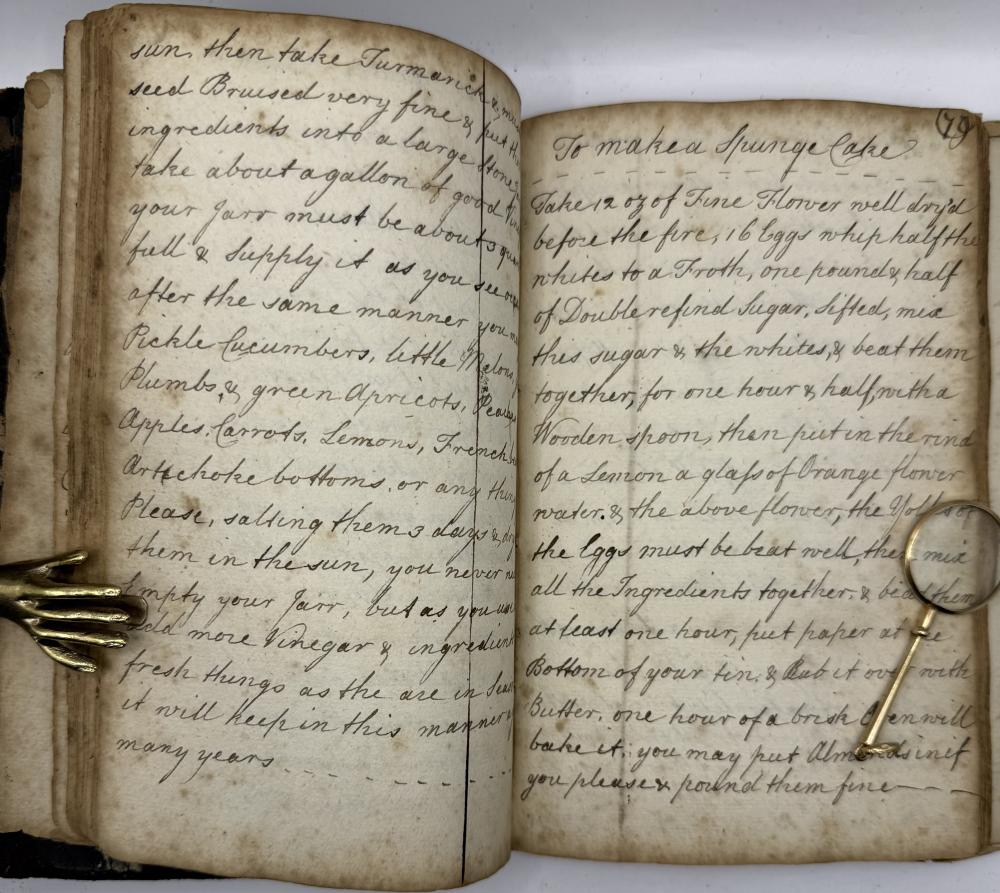 sun, then take Turmarick &
seed Bruised very fine & put
ingredients into a large Stone
take about a gallon of good
your Jarr must be about 3
full & Supply it as you see
after the same manner you
Pickle Cucumbers, little Melons,
Plumbs, & green Apricots,
Apples, Carrots, Lemons, French
Artichoke bottoms, or any
Please, salting them 3 days &
them in the sun, you never
Empty your Jarr, but as you use
add more Vinegar & ingredients
fresh things as the are in
it will keep in this manner
many years
(79)
To make a Spunge Cake
Take 12 oz of Fine Flower well dry'd
before the fire, 16 Eggs whip half the
whites to a Froth, one pound & half
of Double refind Sugar, Sifted, mix
this sugar & the whites, & beat them
together, for one hour & half, with a
Wooden spoon, then put in the rind
of a Lemon a glass of Orange flower
water. & the above flower, the Yolks of
the Eggs must be beat well, then mix
all the Ingredients together. & beat them
at least one hour, put paper at the
Bottom of your tin. & Rub it over with
Butter. one hour of a brisk Oven will
bake it. you may put Almonds in if
you please & pound them fine